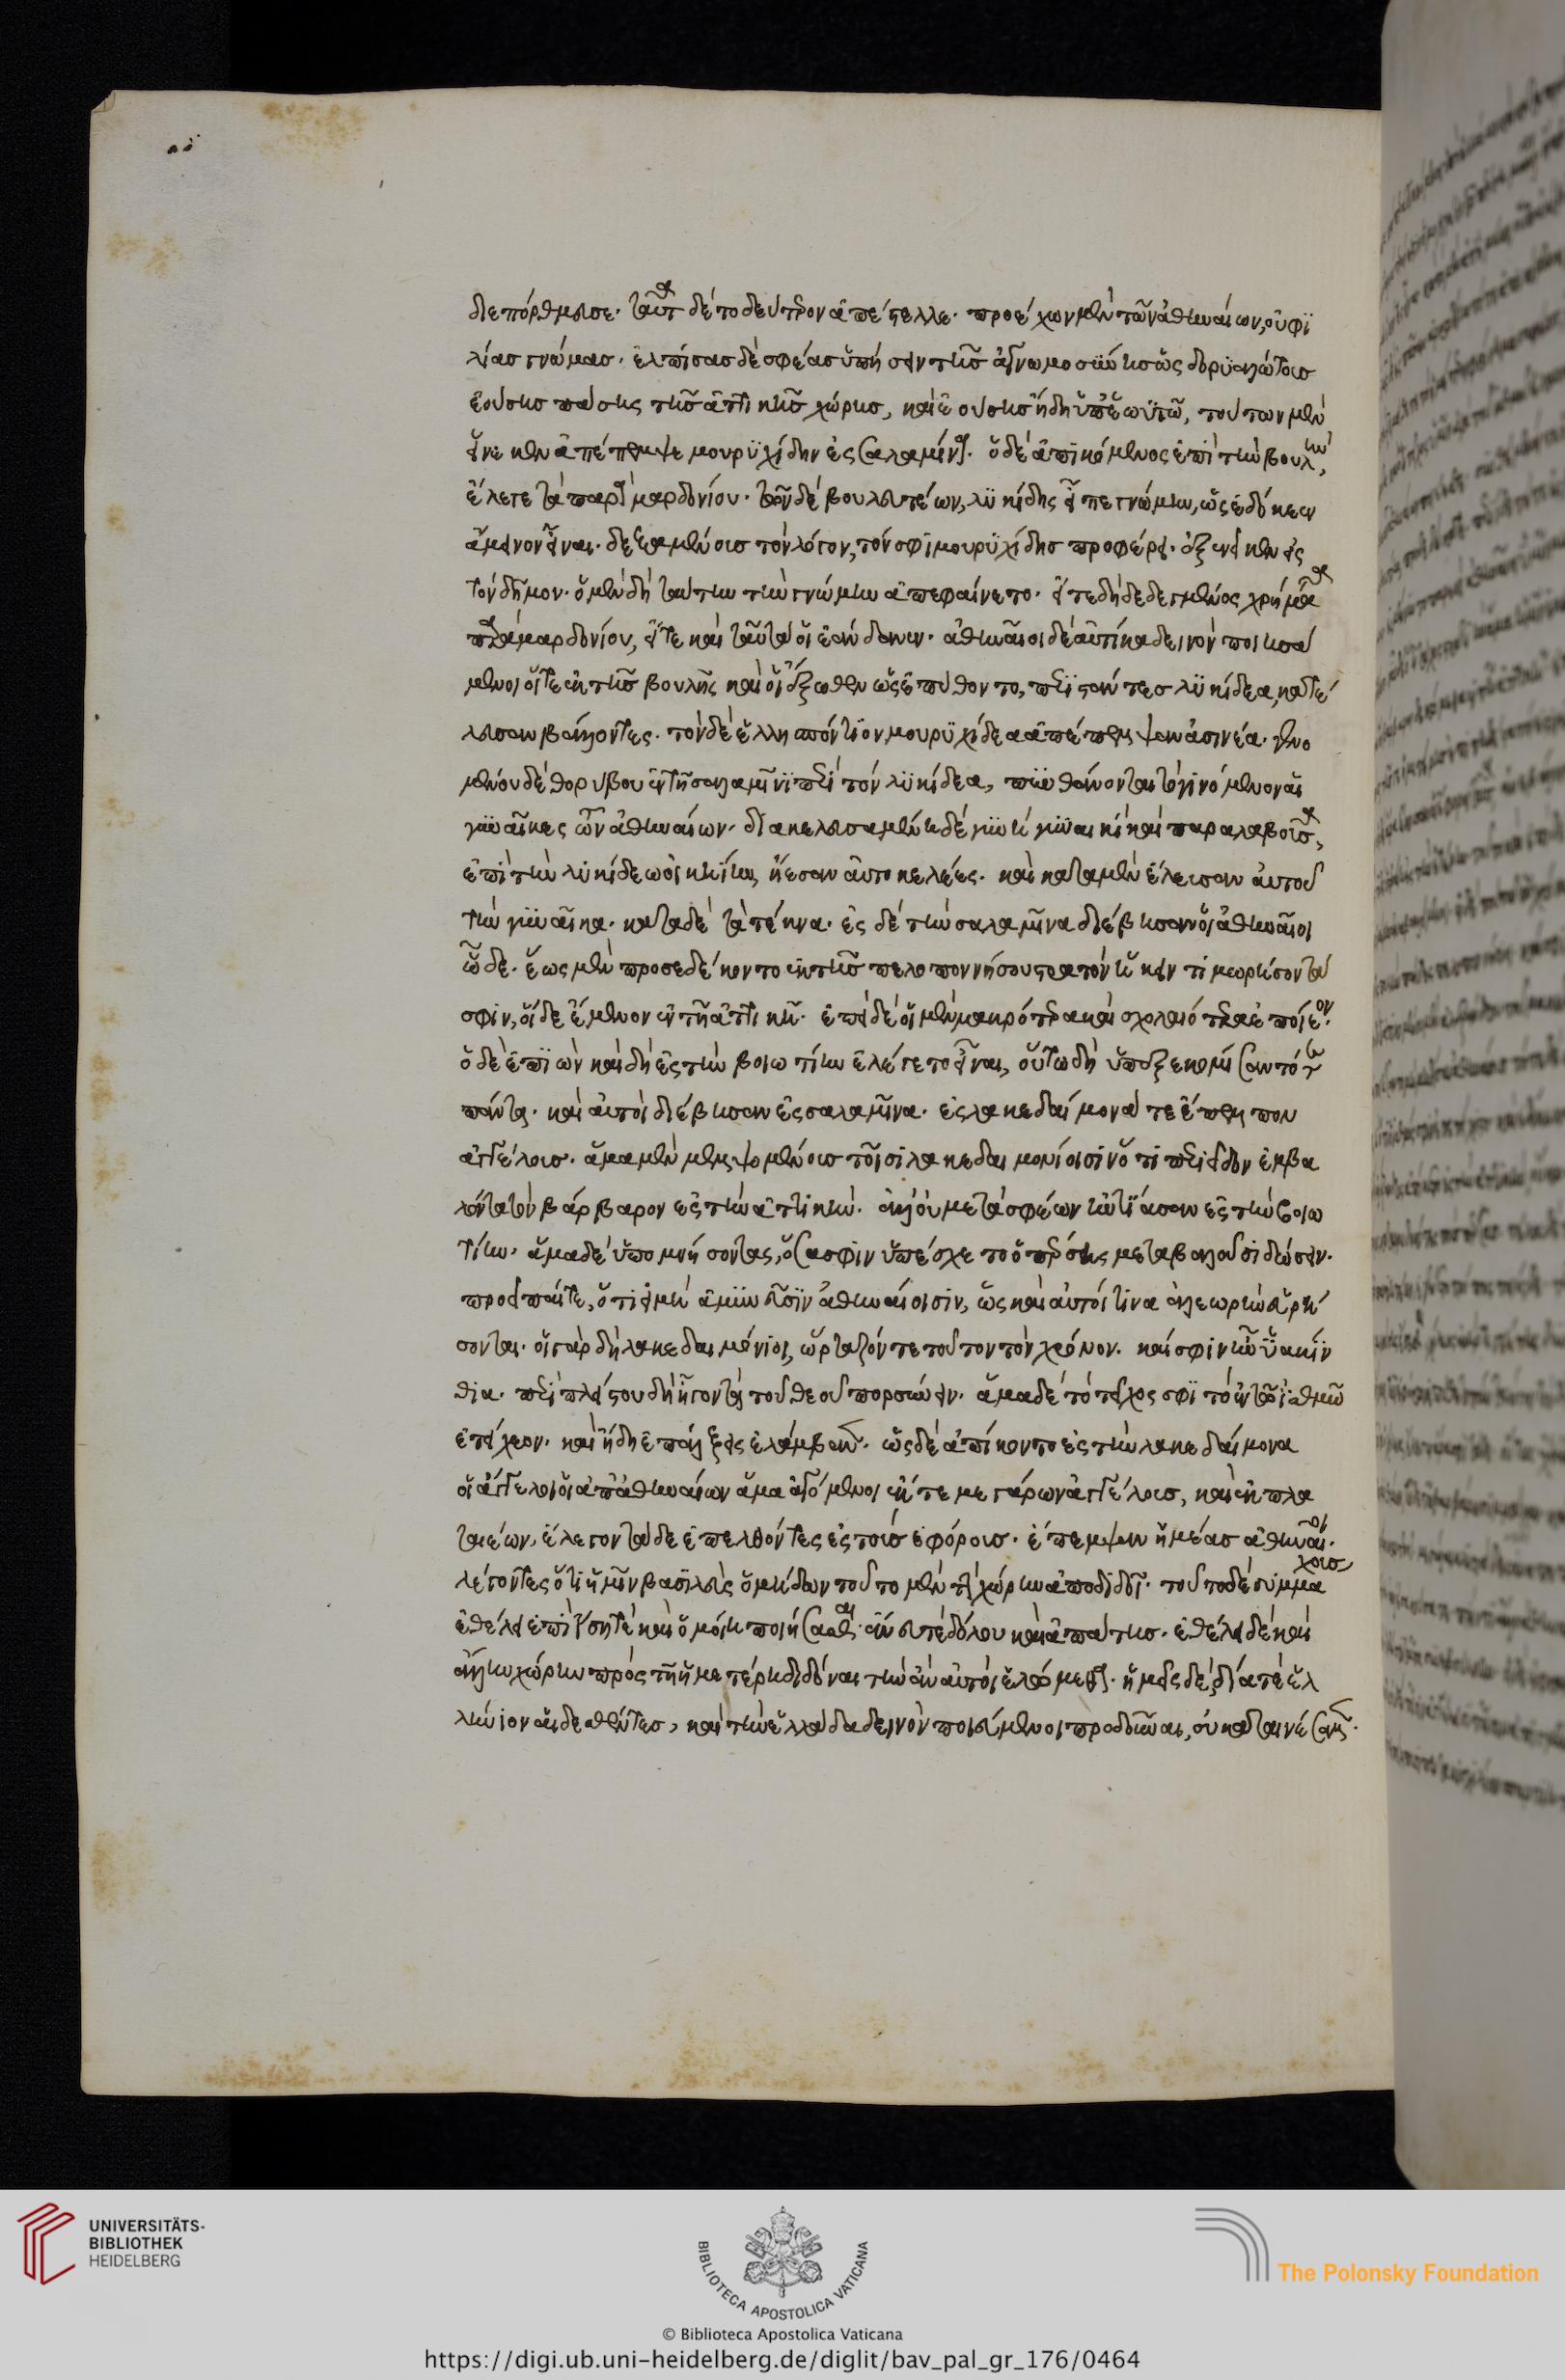 διεπόρθμευσε. ταῦτα δὲ τὸ δεύτερον ἀπέστελλε. προέχων μὲν τῶν ἀθηναίων, οὐ φι
λίας γνώμας. ἐλπίσας δὲ σφέας ὑπήσειν τῆς ἀγνωμοσύνης ὡς δορυαλώτου
ἐούσης πάσης τῆς ἀττικῆς χώρης, καὶ ἐούσης ἤδη ὑπ' ἑωυτῶ, τούτων μὲν
εἵνεκεν ἀπέπεμψε μουρυχίδην ἐς σαλαμῖνα. ὁ δὲ ἀπικόμενος ἐπὶ τὴν βουλὴν,
ἔλεγε τὰ παρὰ μαρδονίου. τῶν δὲ βουλευτέων, λυκίδης εἶπε γνώμην, ὡς ἐδόκεεν
ἄμεινον εἶναι. δεξαμένους τὸν λόγον, τόν σφι μουρυχίδης προφέρει. ἐξενεῖκεν ἐς
τὸν δῆμον. ὁ μὲν δὴ ταύτην τὴν γνώμην ἀπεφαίνετο. εἴτε δὴ δεδεγμένος χρήματα
παρὰ μαρδονίου, εἴτε καὶ ταῦτά οἱ ἑάνδανεν. ἀθηναῖοι δὲ αὐτίκα δεινὸν ποιησά
μενοι οἵ τε ἐκ τῆς βουλῆς καὶ οἱ ἔξωθεν ὡς ἐπύθοντο, περιστάντες λυκίδεα, κατέ
λευσαν βάλλοντες. τὸν δὲ ἑλλησπόντιον μουρυχίδεα ἀπέπεμψαν ἀσινέα. γενο
μένου δὲ θορύβου ἐν τῆ σαλαμῖνι περὶ τὸν λυκίδεα, πυνθάνονται τὸ γινόμενον αἱ
γυναῖκες τῶν ἀθηναίων. διακελευσαμένη δὲ γυνὴ γυναικὶ καὶ παραλαβοῦσα,
ἐπὶ τὴν λυκίδεω οἰκίην ἤεσαν αὐτοκελέες. καὶ κατὰ μὲν ἔλευσαν αὐτοῦ
τὴν γυναῖκα. κατὰ δὲ τὰ τέκνα. ἐς δὲ τὴν σαλαμῖνα διέβησαν οἱ ἀθηναῖοι
ὧδε. ἕως μὲν προσεδέκοντο ἐκ τῆς πελοποννήσου στρατὸν ἥκειν τιμωρήσοντά
σφιν, οἱ δὲ ἔμενον ἐν τῆ ἀττικῆ. ἐπεὶ δὲ οἱ μὲν μακρότερα καὶ σχολαιότερα ἐποίεον.
ὁ δὲ ἐπιὼν καὶ δὴ ἐς τὴν βοιωτίην ἐλέγετο εἶναι, οὕτω δὴ ὑπεξεκομίσαντό τε
πάντα. καὶ αὐτοὶ διέβησαν ἐς σαλαμῖνα. ἐς λακεδαίμονά τε ἔπεμπον
ἀγγέλους. ἅμα μὲν μεμψομένους τοῖσι λακεδαιμονίοισιν ὅτι περιεῖδον ἐμβα
λόντα τὸν βάρβαρον ἐς τὴν ἀττικήν. ἀλλ' οὐ μετὰ σφέων ἠντίασαν ἐς τὴν βοιω
τίην. ἅμα δὲ ὑπομνήσοντας, ὅσα σφιν ὑπέσχετο ὁ πέρσης μεταβαλοῦσι δώσειν.
προειπαί τε, ὅτι εἰ μὴ ἀμυνεῦσιν ἀθηναίοισιν, ὡς καὶ αὐτοί τινα ἀλεωρὴν εὑρή
σονται. οἱ γὰρ δὴ λακεδαιμόνιοι, ὥρταζόν τε τοῦτον τὸν χρόνον. καί σφιν ἦν ὑακίν
θια. περὶ πλείστου δὴ ἦγον τὰ τοῦ θεοῦ πορσύνειν. ἅμα δὲ τὸ τεῖχός σφι τὸ ἐν τῶ ἰσθμῶ
ἐτείχεον. καὶ ἤδη ἐπάλξεις ἐλάμβανε. ὡς δὲ ἀπίκοντο ἐς τὴν λακεδαίμονα
οἱ ἄγγελοι οἱ ἀπ' ἀθηναίων ἅμα ἀγόμενοι ἔκ τε μεγάρων ἀγγέλους, καὶ ἐκ πλα
ταιέων, ἔλεγον τάδε ἐπελθόντες ἐς τοὺς ἐφόρους. ἔπεμψαν ἡμέας ἀθηναῖοι.
λέγοντες ὅτι ἡμῖν βασιλεὺς ὁ μήδων τοῦτο μὲν τὴν χώρην ἀποδιδοῖ. τοῦτο δὲ συμμάχους
ἐθέλει ἐπ' ἴση τε καὶ ὁμοίη ποιήσασθαι ἄνευ τε δόλου καὶ ἀπάτης. ἐθέλει δὲ καὶ
ἄλλην χώρην πρὸς τῆ ἡμετέρη διδόναι τὴν ἂν αὐτοὶ ἑλώμεθα. ἡμεῖς δὲ δία τε ἑλ
λήνιον αἰδεσθέντες, καὶ τὴν ἑλλάδα δεινὸν ποιεύμενοι προδοῦναι, οὐ καταινέσαμεν.
UNIVERSITÄTS-
BIBLIOTHEK
HEIDELBERG
BIBLIOTECA APOSTOLICA VATICANA
The Polonsky Foundation
© Biblioteca Apostolica Vaticana
https://digi.ub.uni-heidelberg.de/diglit/bav_pal_gr_176/0464